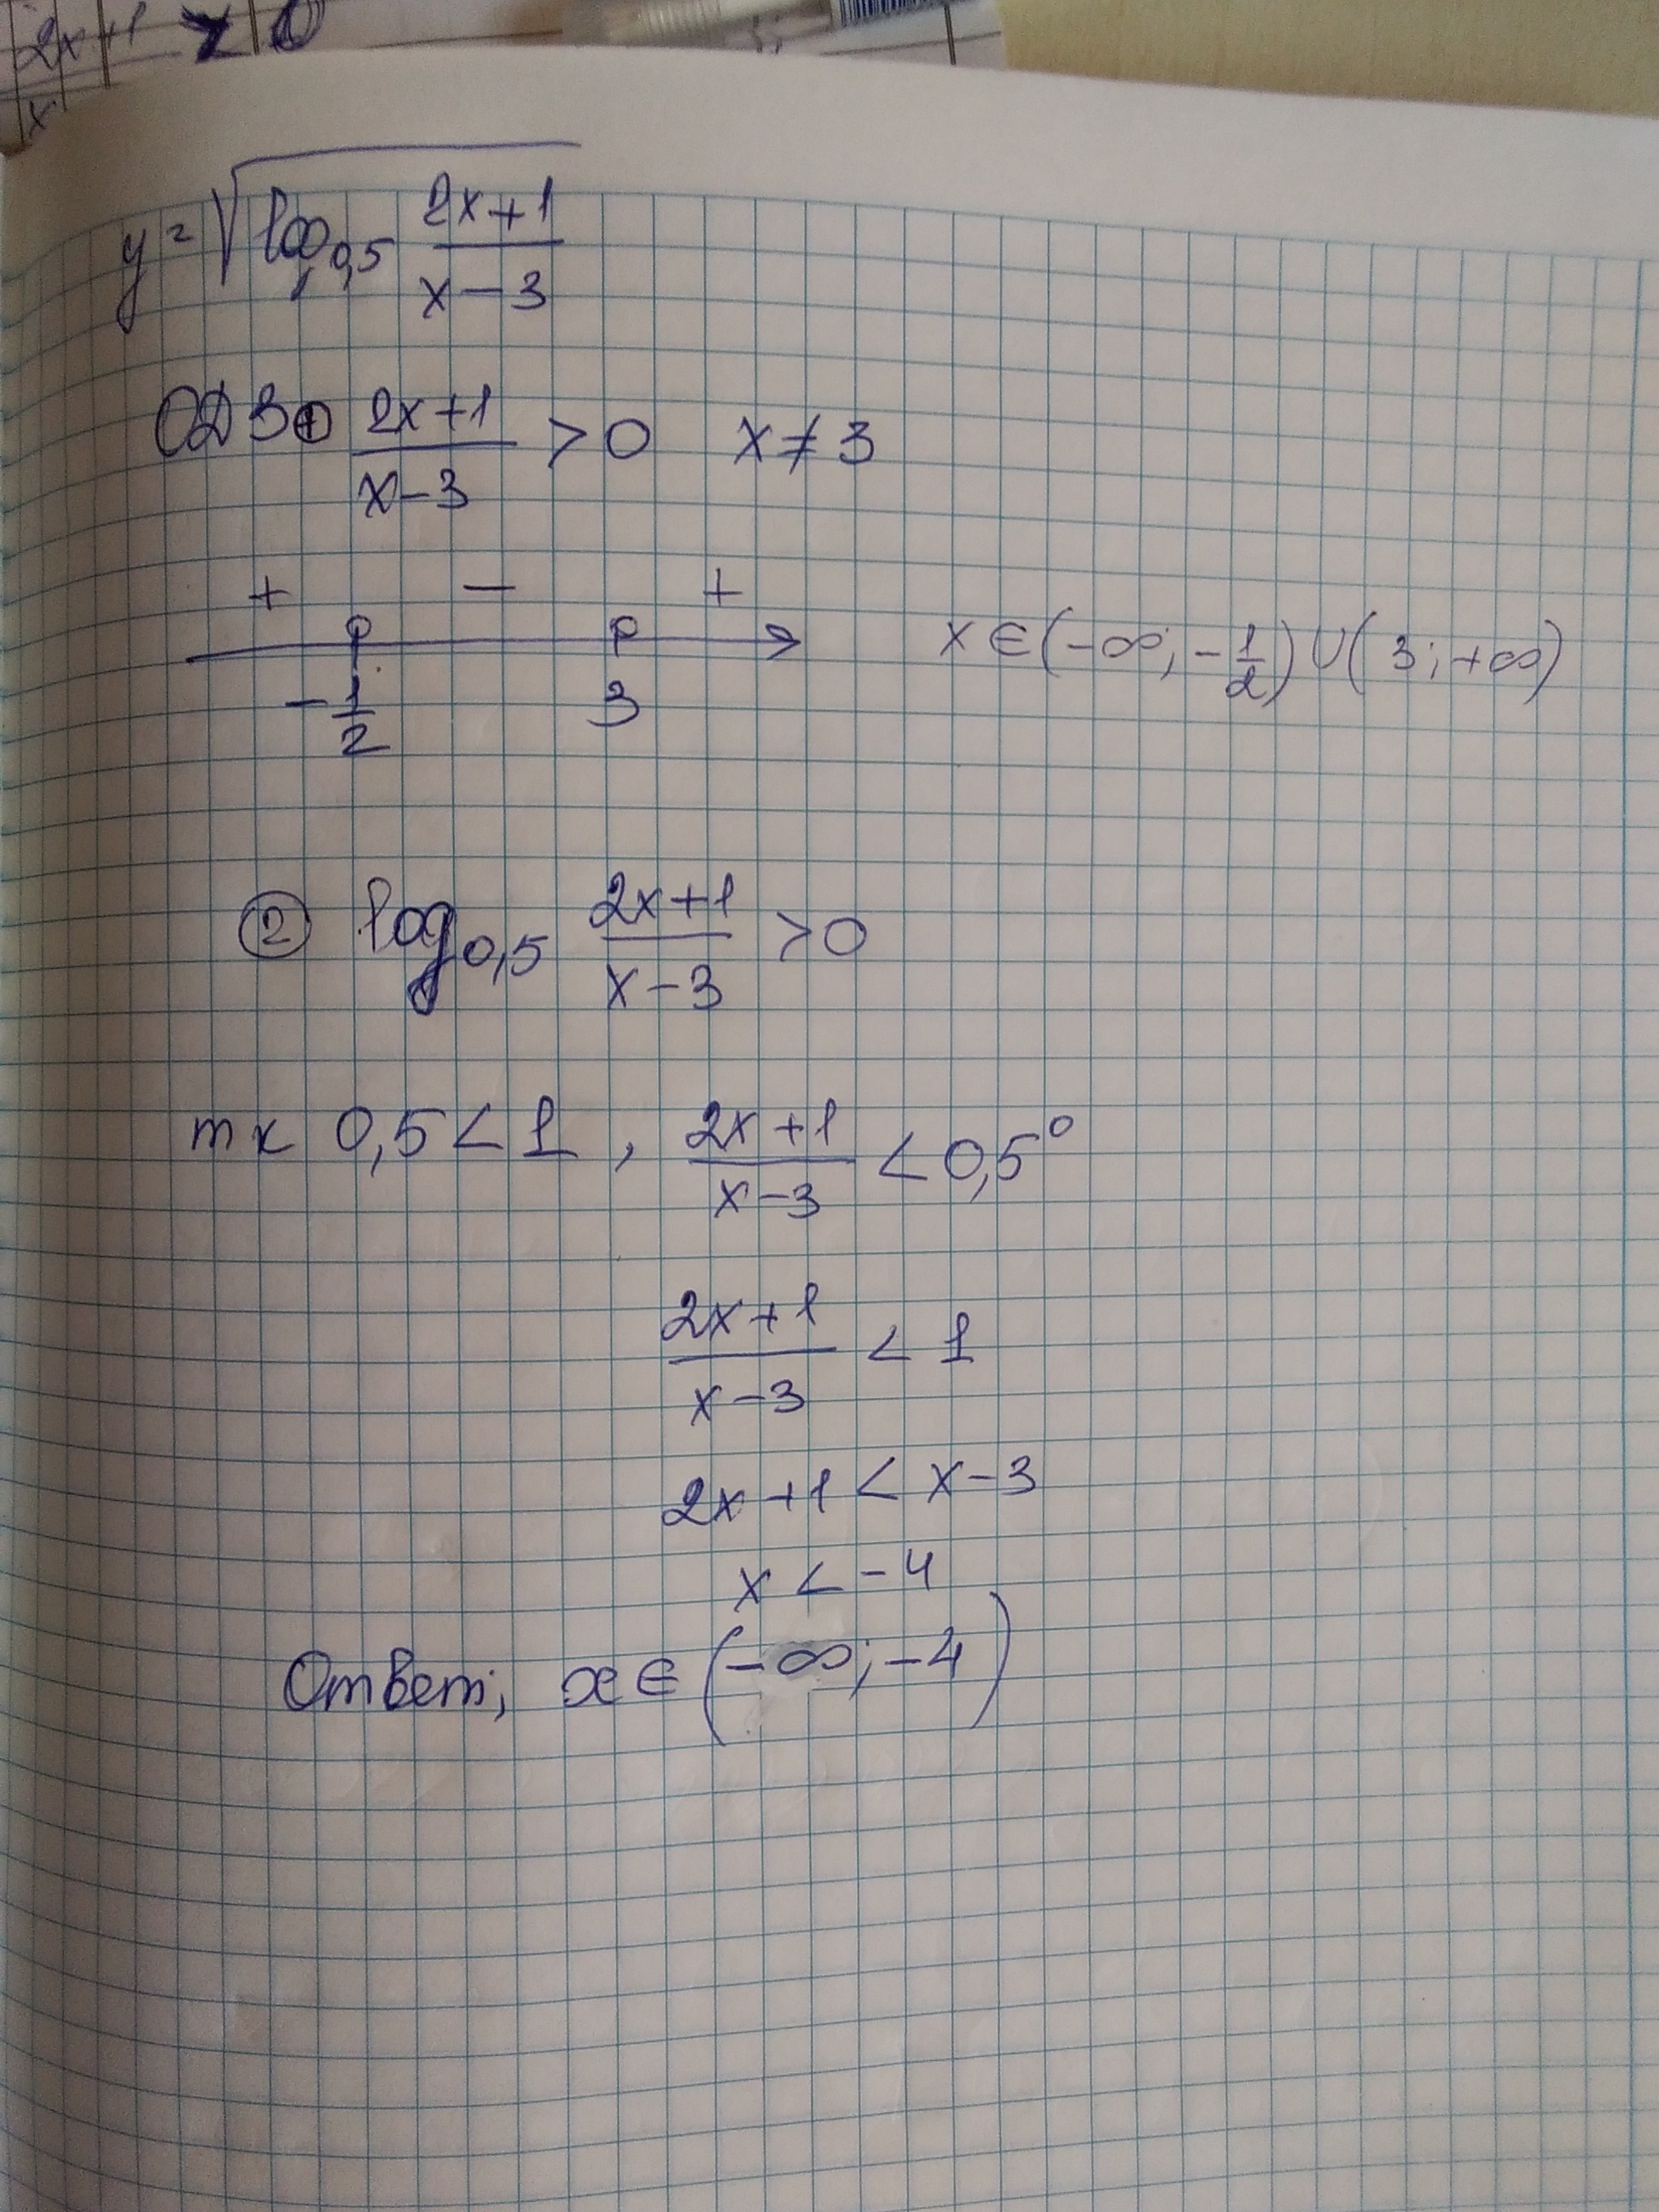 2x+1 > 0
x
y = √(log₀,₅ (2x+1)/(x-3))
ОДЗ ① (2x+1)/(x-3) > 0 x ≠ 3
+ - +
-1/2 3 x ∈ (-∞; -1/2) ∪ (3; +∞)
② log₀,₅ (2x+1)/(x-3) > 0
тк 0,5 < 1, (2x+1)/(x-3) < 0,5⁰
(2x+1)/(x-3) < 1
2x+1 < x-3
x < -4
Ответ; x ∈ (-∞; -4)